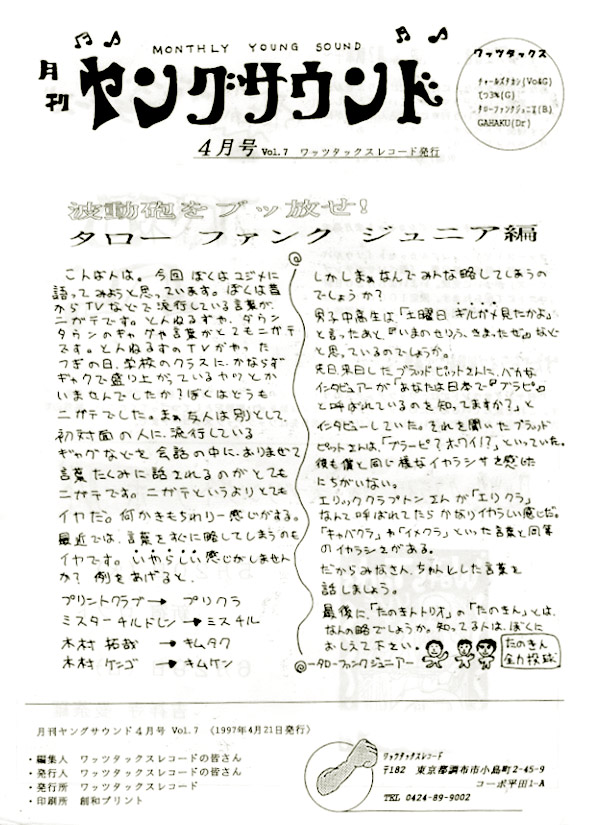 MONTHLY YOUNG SOUND
月刊
ヤングサウンド
4月号 Vol.7 ワッツタックスレコード発行
ワッツタックス
チャールズタカシ(Vo&G)
てつ3%(G)
タローファンクジュニア(B)
GAHAKU(Dr)
波動砲をブッ放せ!
タロー ファンク ジュニア編
こんばんは。今回 ぼくはマジメに
語ってみようと思っています。ぼくは昔
からTVなどで流行している言葉が、
ニガテです。とんねるずや、ダウン
タウンのギャグや言葉がとてもニガテ
です。とんねるずのTVがやった
つぎの日、学校のクラスに、かならず
ギャグで盛り上がっているヤツとか
いませんでしたか?ぼくはどうも
ニガテでした。まぁ友人は別として、
初対面の人に、流行している
ギャグなどを会話の中に、おりまぜて
言葉たくみに話されるのがとても
ニガテです。ニガテというよりとても
イヤだ。何かきもちわりー感じがする。
最近では、言葉を松に略してしまうのも
イヤです。いやらしい感じがしません
か? 例をあげると、
プリントクラブ→プリクラ
ミスターチルドレン→ミスチル
木村 拓哉 → キムタク
木村 ケンゴ → キムケン
しかしまぁなんでみんな略してしまうの
でしょうか?
男子中高生は「土曜日 ギルガメ見たかよ」
と言ったあと、『いまのせりふ、きまったぜ』などと
と思っているのでしょうか。
先日、来日したブラッドピットさんに、バカな
インタビュアーが「あなたは日本で『ブラピ』
と呼ばれているのを知ってますか?」と
インタビューしていた。それを聞いたブラッド
ピットさんは、「ブラーピ?ホワイ!?」といっていた。
彼も僕と同じ様なイヤラシサを感じた
にちがいない。
エリッククラプトンさんが「エリクラ」
なんて呼ばれてたらかなりイヤらしい感じだ。
「キャバクラ」や「イメクラ」といった言葉と同等
のイヤラシさがある。
だからみなさん、ちゃんとした言葉を
話しましょう。
最後に、「たのきんトリオ」の「たのきん」とは、
なんの略でしょうか。知ってる人は、ぼくに
おしえて下さい。
ータローファンクジュニアー
たのきん
全力投球
月刊ヤングサウンド4月号 Vol.7 (1997年4月21日発行)
・編集人 ワッツタックスレコードの皆さん
・発行人 ワッツタックスレコードの皆さん
・発行所 ワッツタックスレコード
・印刷所 創和プリント
ワッツタックスレコード
〒182 東京都調布市小島町2-45-9
コーポ平田1-A
TEL 0424-89-9002